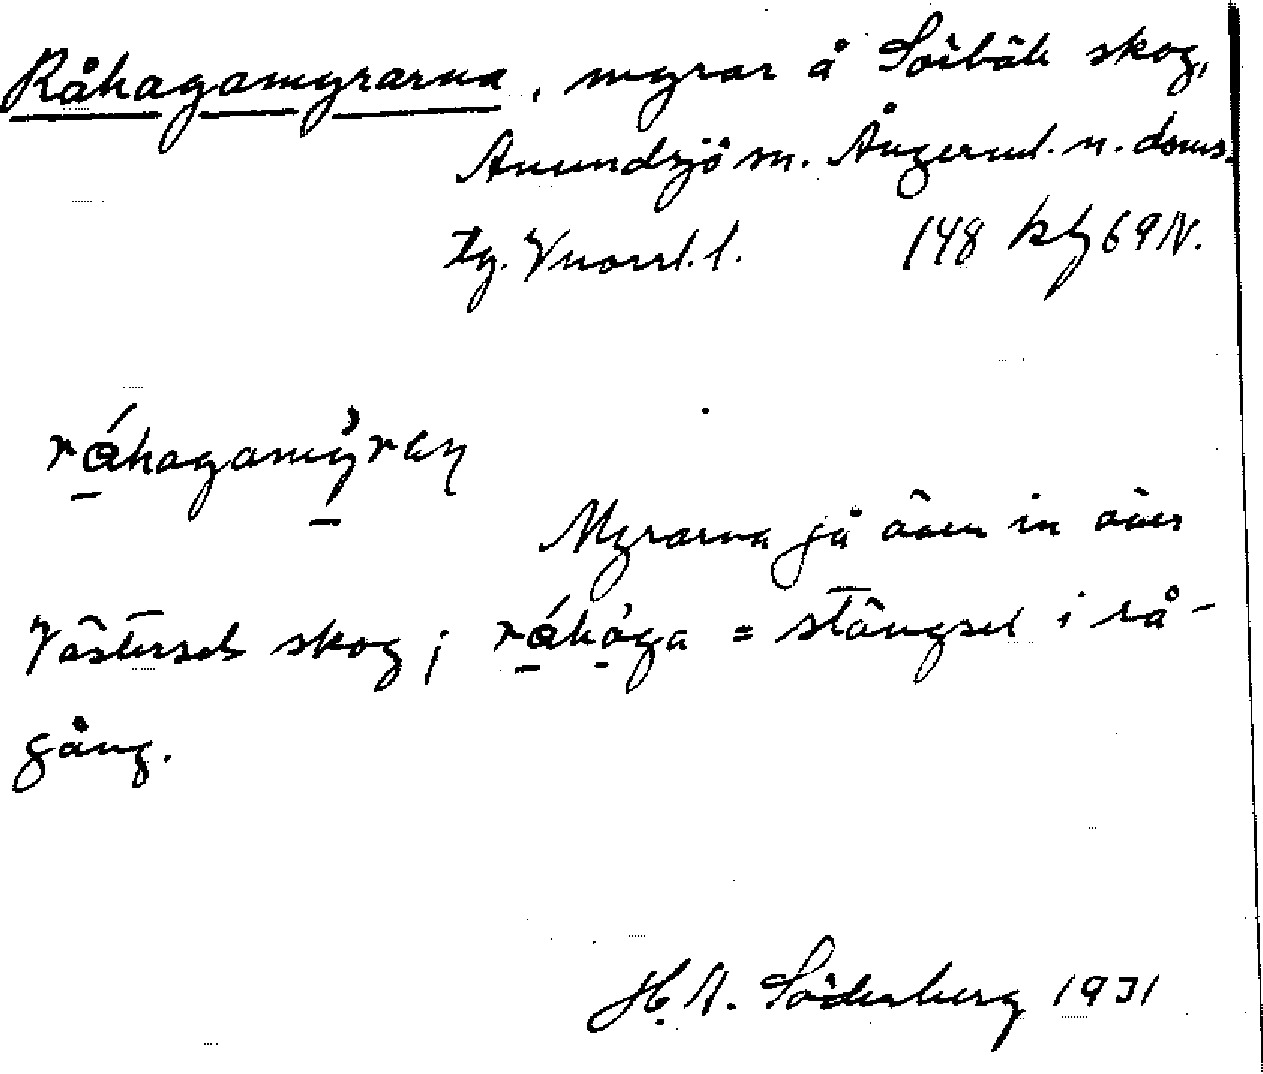 Råhagamyrarna, myrar å Sörbäck skog,
Anundsjö sn. Ångerml. n. doms.
tg. Vnorrl. l. 148 kbg 69 N.
råhagamyran
Myrarna gå även in över
Västersels skog; råhaga = stängsel i rå-
gång.
H. A. Söderberg 1931